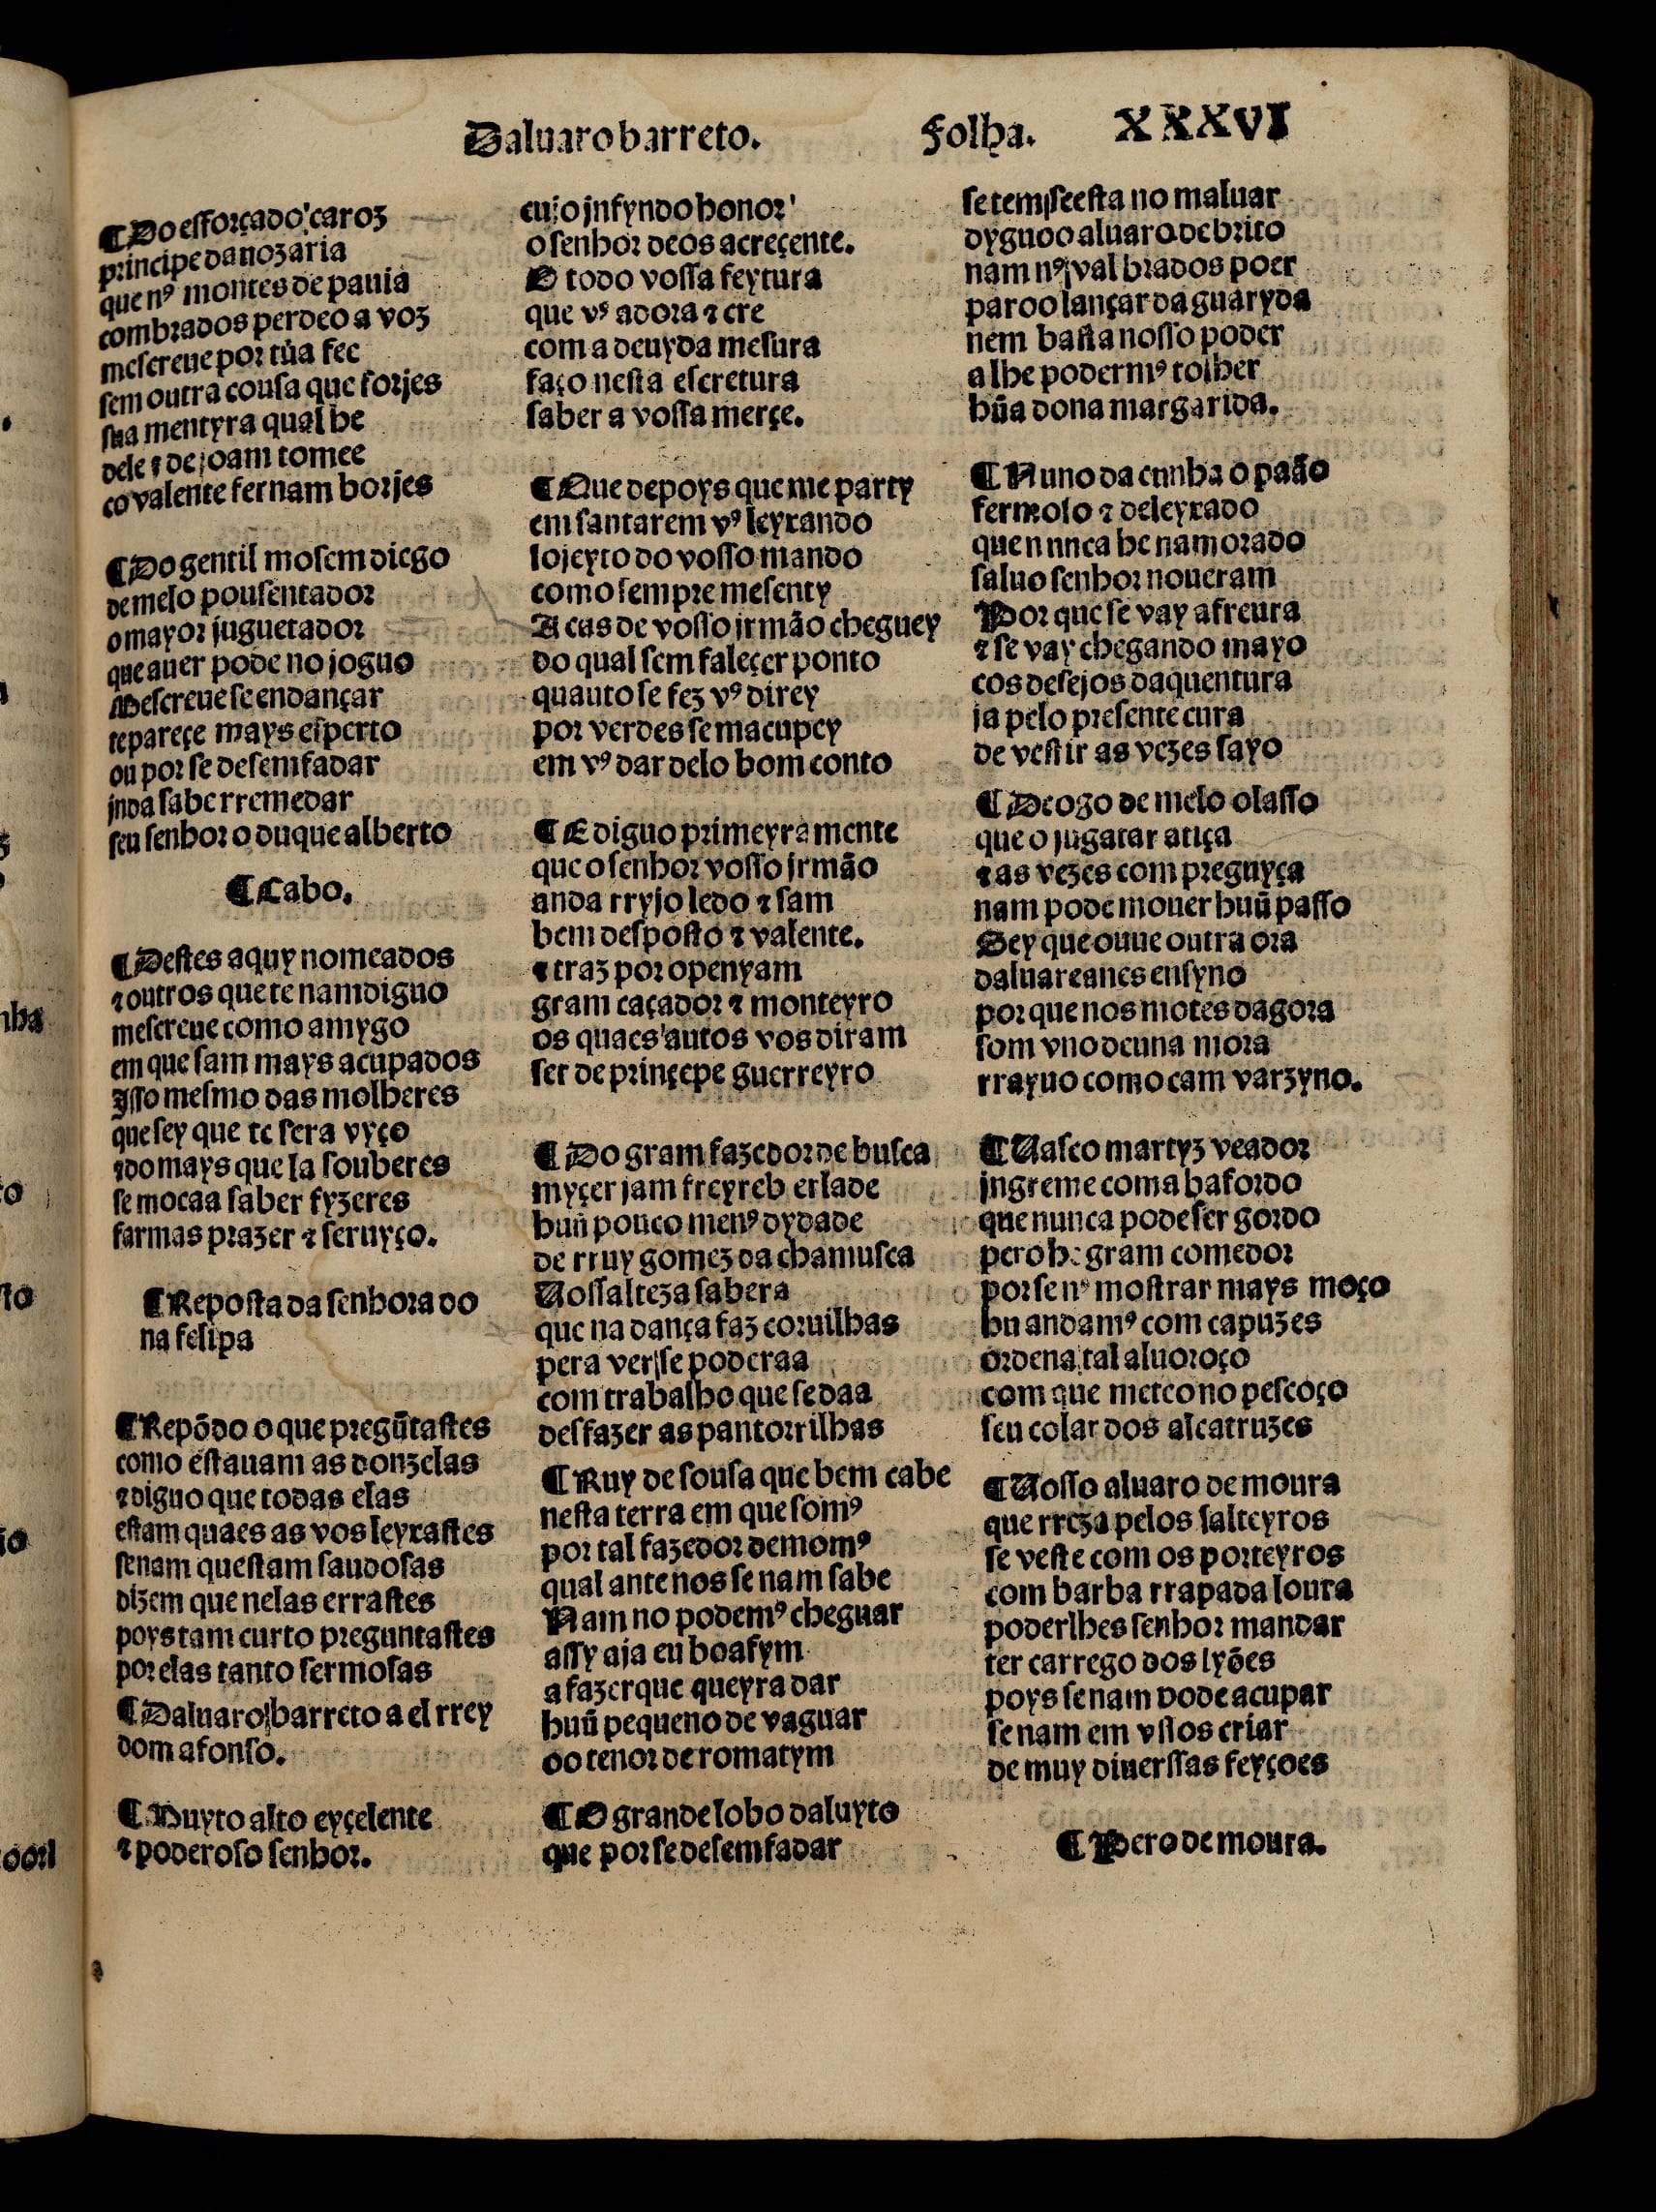 Daluaro barreto. Folha. XXXVI
¶ Do esforçado caroz
prinçipe da nozaria
que nꝰ montes de pauia
com brados perdeo a voz
mescreue por tũa fee
sem outra cousa que forjes
sua mentyra qual he
dele ⁊ de joam tomee
co valente fernam borjes
¶ Do gentil mosem diego
de melo pousentador
o mayor juguetador
que auer pode no joguo
Mescreue se en dançar
te pareçe mays esperto
ou por se desemfadar
jnda sabe rremedar
seu senhor o duque alberto
¶ Cabo.
¶ Destes aquy nomeados
⁊ outros que te nam diguo
mescreue como amygo
em que sam mays acupados
Isso mesmo das molheres
que sey que te sera vyço
⁊ do mays que la souberes
se mo caa saber fyzeres
farmas prazer ⁊ seruyço.
¶ Reposta da senhora do
na felipa
¶ Repõdo o que pregũtastes
como estauam as donzelas
⁊ diguo que todas elas
estam quaes as vos leyxastes
senam questam saudosas
dizem que nelas errastes
poys tam curto preguntastes
por elas tanto fermosas
¶ Daluaro barreto a el rrey
dom afonso.
¶ Muyto alto eyçelente
⁊ poderoso senhor.
cujo jnfyndo honor
o senhor deos acreçente.
O todo vossa feytura
que vꝰ adora ⁊ cre
com a deuyda mesura
faço nesta escretura
saber a vossa merçe.
¶ Que depoys que me party
em santarem vꝰ leyxando
sojeyto do vosso mando
como sempre me senty
A cas de vosso jrmão cheguey
do qual sem faleçer ponto
quauto se fez vꝰ direy
por verdes se macupey
em vꝰ dar delo bom conto
¶ E diguo primeyramente
que o senhor vosso jrmão
anda rryjo ledo ⁊ sam
bem desposto ⁊ valente.
⁊ traz por openyam
gram caçador ⁊ monteyro
os quaes autos vos diram
ser de prinçepe guerreyro
¶ Do gram fazedor de busca
myçer jam freyreb erlade
huũ pouco menꝰ dydade
de rruy gomez da chamusca
Uossalteza sabera
que na dança faz coruilhas
pera ver se poderaa
com trabalho que se daa
desfazer as pantorrilhas
¶ Ruy de sousa que bem cabe
nesta terra em que somꝰ
por tal fazedor de momꝰ
qual ante nos se nam sabe
Nam no podemꝰ cheguar
assy aja eu boa fym
a fazer que queyra dar
huũ pequeno de vaguar
oo tenor de romatym
¶ O grande lobo daluyto
que por se desemfadar
se tem se esta no maluar
dyguo o aluaro de brito
nam nꝰ val brados poer
par oo lançar da guaryda
nem basta nosso poder
a lhe podermꝰ tolher
hũa dona margarida.
¶ Nuno da cunha o paão
fermoso ⁊ deleyxado
que nunca he namorado
saluo senhor no ueram
Por que se vay a freura
⁊ se vay chegando mayo
cos desejos da quentura
ja pelo presente cura
de vestir as vezes sayo
¶ Deogo de melo o lasso
que o jugatar atiça
⁊ as vezes com preguyça
nam pode mouer huũ passo
Sey que ouue outra ora
daluareanes ensyno
por que nos motes dagora
som vno de una mora
rrayuo como cam varzyno.
¶ Uasco martyz veador
jngreme coma bafordo
que nunca pode ser gordo
pero he gram comedor
por se nꝰ mostrar mays moço
hu andamꝰ com capuzes
ordena tal aluoroço
com que metco no pescoço
seu colar dos alcatruzes
¶ Uosso aluaro de moura
que rreza pelos salteyros
se veste com os porteyros
com barba rrapada loura
poderlhes senhor mandar
ter carrego dos lyões
poys se nam pode acupar
se nam em vssos criar
de muy diuerssas feyçoes
¶ Pero de moura.